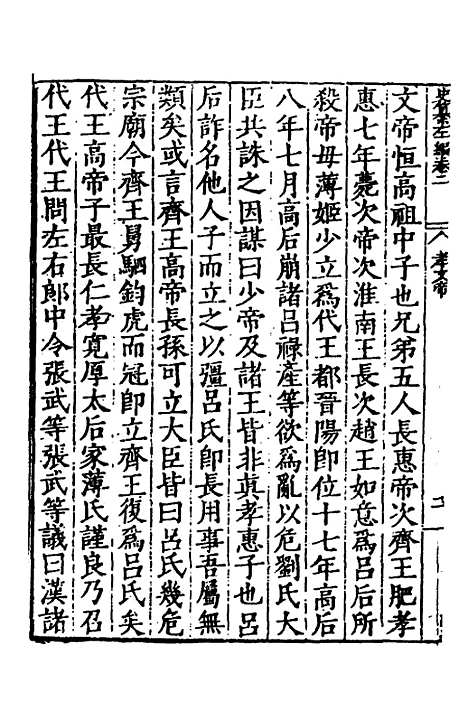 史纂左編卷二 孝文帝
文帝恒高祖中子也兄弟五人長惠帝次齊王肥孝
惠七年薨次帝次淮南王長次趙王如意爲呂后所
殺帝母薄姬少立爲代王都晉陽即位十七年高后
八年七月高后崩諸呂祿産等欲爲亂以危劉氏大
臣共誅之因謀曰少帝及諸王皆非真孝惠子也呂
后詐名他人子而立之以彊呂氏即長用事吾屬無
類矣或言齊王高帝長孫可立大臣皆曰呂氏幾危
宗廟今齊王舅駟鈞虎而冠即立齊王復爲呂氏矣
代王高帝子最長仁孝寬厚太后家薄氏謹良乃召
代王代王問左右郎中令張武等張武等議曰漢諸